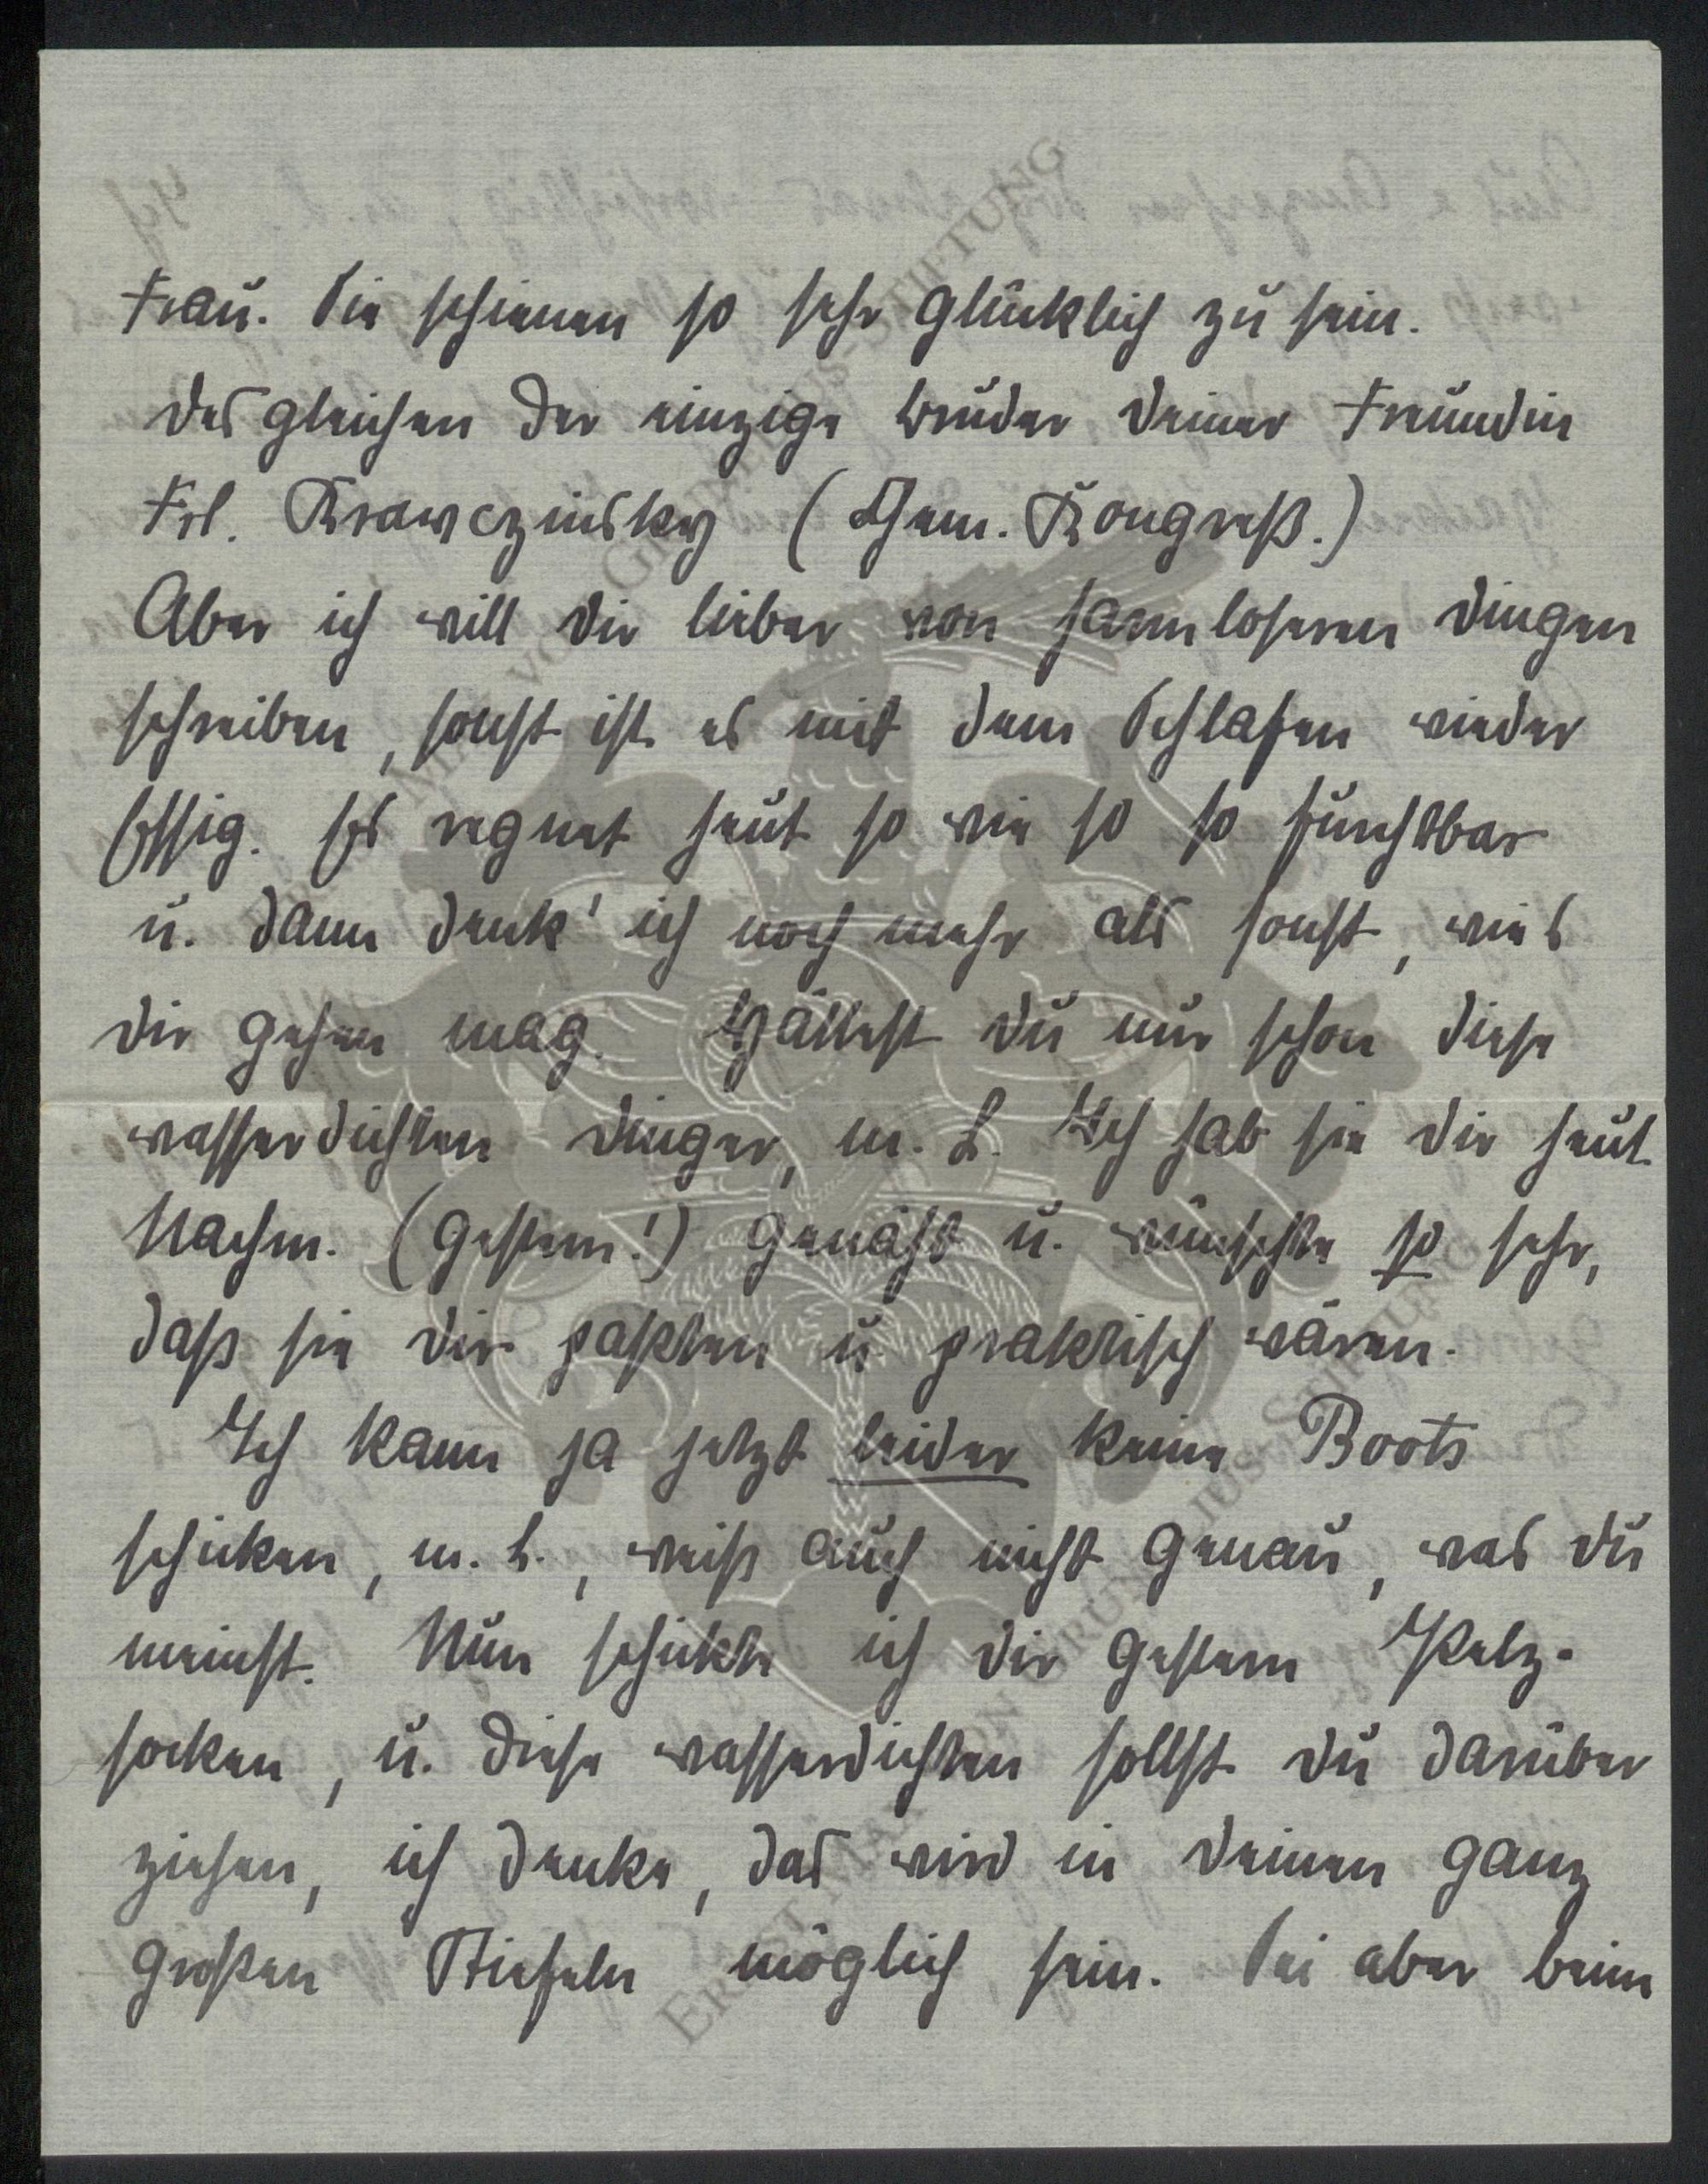 Frau. Sie schienen so sehr glücklich zu sein.
Desgleichen der einzige Bruder Deiner Freundin
Frl. Krawczinsky (Chem. Kongreß.)
Aber ich will Dir lieber von harmloseren Dingen
schreiben, sonst ist es mit dem Schlafen wieder
Essig. Es regnet heut so wie so so furchtbar
u. dann denk' ich noch mehr als sonst, wie's
Dir gehen mag. Hättest Du nur schon diese
wasserdichten Dinger, m. L. Ich hab sie Dir heut
Nachm. (gestern!) genäht u. wünschte so sehr,
daß sie Dir paßten u. praktisch wären.
Ich kann ja jetzt leider keine Boots
schicken, m. L., weiß auch nicht genau, was Du
meinst. Nun schickte ich Dir gestern Pelz-
socken, u. diese wasserdichten sollst Du darüber
ziehen, ich denke, das wird in Deinen ganz
großen Stiefeln möglich sein. Sei aber beim